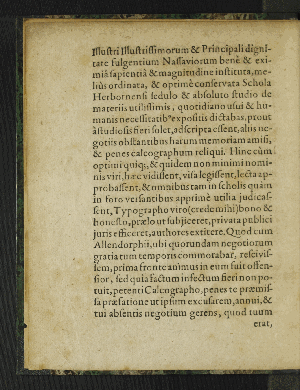 Illustri Illustrissimorum & Principali digni-
tate fulgentium Nassaviorum benè & exi-
miâ sapientiâ & magnitudine instituta, me-
liùs ordinata, & optimè conservata Schola
Herbornensi sedulo & absoluto studio de
materiis utilissimis, quotidiano usui & hu-
manis necessitatib9 expositis dictabas, prout
à studiosis fieri solet, adscripta essent, aliis ne-
gotiis obstantibus harum memoriam amisi,
& penes calcographum reliqui. Hinc cùm
optimi quiq;, & quidem non minimi nomi-
nis viri, hæc vidissent, visa legissent, lecta ap-
probassent, & omnibus tam in scholis quàm
in foro versantibus apprimè utilia judicas-
sent, Typographo viro (crede mihi) bono &
honesto, prælo ut subjiceret, privata publici
juris efficeret, authores extitere. Quod cum
Allendorphii, ubi quorundam negotiorum
gratia tum temporis commorabar, rescivis-
sem, prima fronte animus in eum fuit offen-
sior, sed quia factum infectum fieri non po-
tuit, petenti Calcographo, penes te præmis-
sa præfatione ut ipsum excusarem, annui, &
tui absentis negotium gerens, quod tuum
erat,